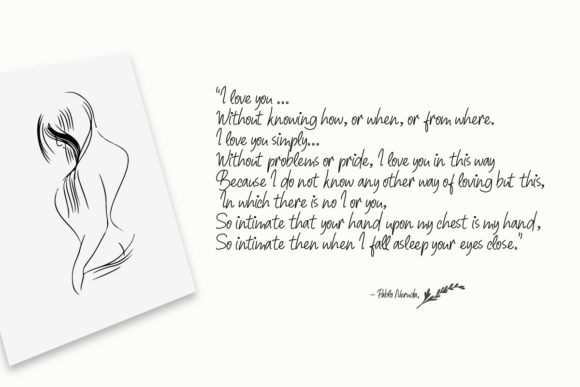 "I love you ...
Without knowing how, or when, or from where.
I love you simply...
Without problems or pride, I love you in this way
Because I do not know any other way of loving but this,
In which there is no I or you,
So intimate that your hand upon my chest is my hand,
So intimate then when I fall asleep your eyes close."
- Pablo Neruda,